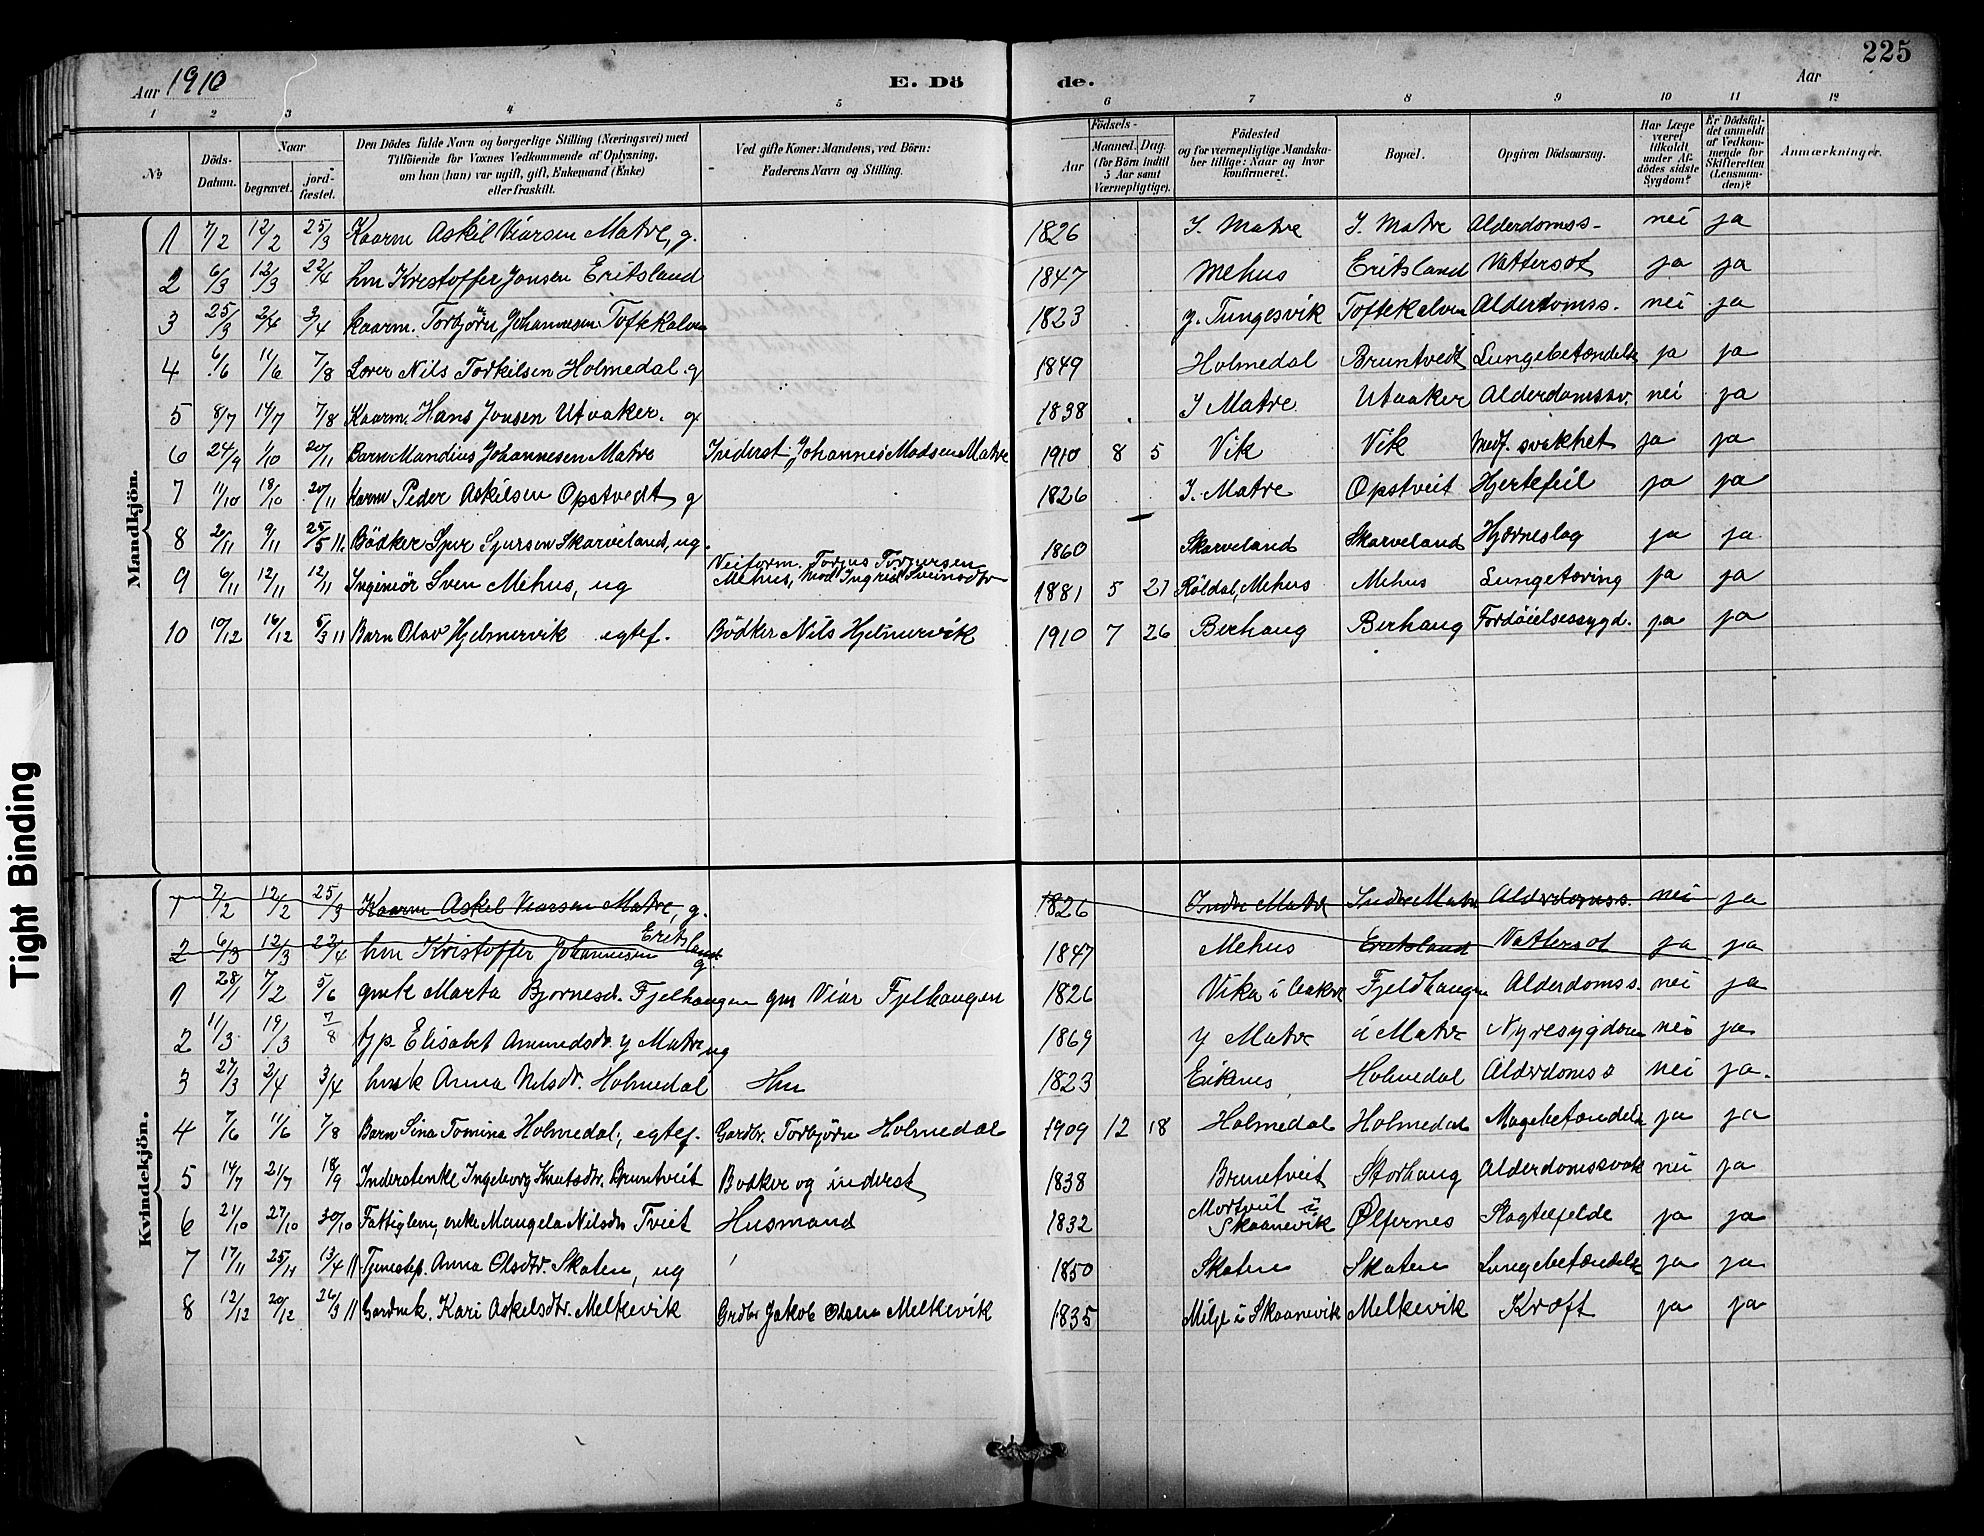 225
Aar 1910
E. Dö
de.
Aar
1 2 3 4 5 6 7 8 9 10 11 12
№
Döds-Datum.
Naar
begravet.
jord-fæstet.
Den Dödes fulde Navn og borgerlige Stilling (Næringsvei) med
Tilföiende for Voxnes Vedkommende af Oplysning,
om han (hun) var ugift, gift, Enkemand (Enke)
eller fraskilt.
Ved gifte Koner: Mandens, ved Börn:
Faderens Navn og Stilling.
Födsels-
Aar
Maaned. Dag.
(for Börn indtil
5 Aar samt
Værnepligtige).
Födested
og for værnepligtige Mandska-
ber tillige: Naar og hvor
konfirmeret.
Bopæl.
Opgiven Dödsaarsag.
Har Læge
været
tilkaldt
under Af-
dödes sidste
Sygdom?
Er Dödsfal-
det anmeldt
af Vedkom-
mende for
Skifteretten
(Lensman-
den)?
Anmærkninger.
Mandkjön.
1 7/2 12/2 25/3 Kaarm Askil Viarsen Matre, g. 1826 I. Matre I. Matre Alderdomss. nei ja
2 6/3 12/3 22/4 hm Kristoffer Jonsen Eritsland 1847 Mehus Eritsland Vattersot ja ja
3 25/3 2/4 3/4 Kaarm. Torbjörn Johannesen Toftekalven 1823 y. Tungesvik Toftekalven Alderdomss. nei ja
4 6/6 11/6 7/8 Lærer Nils Torkilsen Holmedal g 1849 Holmedal Bruntvedt Lungebetændelse ja ja
5 8/7 14/7 7/8 Kaarm. Hans Jonsen Utvaaker. g. 1838 I Matre Utaaker Alderdomssv. nei ja
6 24/9 1/10 20/11 Barn Mandius Johannesen Matre Inderst Johannes Madsen Matre 1910 8 5 Vik Vik Medf. svakhet ja ja
7 11/10 18/10 20/11 Karm Peder Askilsen Opstvedt g 1826 I. Matre Opstveit Hjertefeil ja ja
8 2/11 9/11 25/5 11. Bödker Sjur Sjursen Skarveland, ug. 1860 Skarveland Skarveland Hjerneslag ja ja
9 6/11 12/11 12/11 Ingeniör Sven Mehus, ug Veiform. Torjus Torjursen
Mehus, Mod. Ingrid Sveinsdtr 1881 5 27 Röldal, Mehus Mehus Lungetæring ja ja
10 10/12 16/12 5/3 11 Barn Olav Hjelmervik egtef. Bödker Nils Hjelmervik 1910 7 26 Berhaug Berhaug Fordöielsessygd. ja ja
Kvindekjön.
1 7/2 12/2 25/3 Kaarm Askel Viarsen Matre, g. 1826 Indre Matre Indre Matre Alderdomss. nei ja
2 6/3 12/3 22/4 hm Kristoffer Johannesen Eritsland g. 1847 Mehus Eretsland Vattersot ja ja
1 28/1 7/2 5/6 gmk Marta Bjornesd. Fjelhaugen gm Viar Fjelhaugen 1826 Vika i Fjeldhaugen Alderdomss. nei ja
2 11/3 19/3 7/8 tjp. Elisabet Amundsdr. y Matre ug 1869 y Matre i Matre Nyresygdom nei ja
3 27/3 2/4 3/4 hmk Anna Nilsdr. Holmedal Hm 1823 Eiknes Holmedal Alderdomss nei ja.
4 7/6 11/6 7/8 Barn Sina Tomina Holmedal, egtef. Gardbr. Torbjörn Holmedal 1909 12 18 Holmedal Holmedal Magebetændelse ja ja
5 14/7 21/7 18/9 Inderstenke Ingeborg Knutsdtr. Bruntveit Bodker og inderst 1838 Bruntveit Storhaug Alderdomssvak nei ja
6 21/10 27/10 30/10 Fattiglem, enke Mangela Nilsdtr Tveit Husmand 1832 Mortveit i
Skaanevik Ølfernes Slagtilfelde ja ja
7 17/11 25/11 13/4 11 Tjenestep. Anna Olsdtr. Skaten, ug 1850 Skaten Skaten Lungebetændelse ja ja
8 12/12 20/12 26/3 11 Gardmk. Kari Askelsdtr. Melkevik Grdbr Jakob Olsen Melkevik 1835 Milje i Skaanevik Melkevik Kræft ja ja
Tight Binding